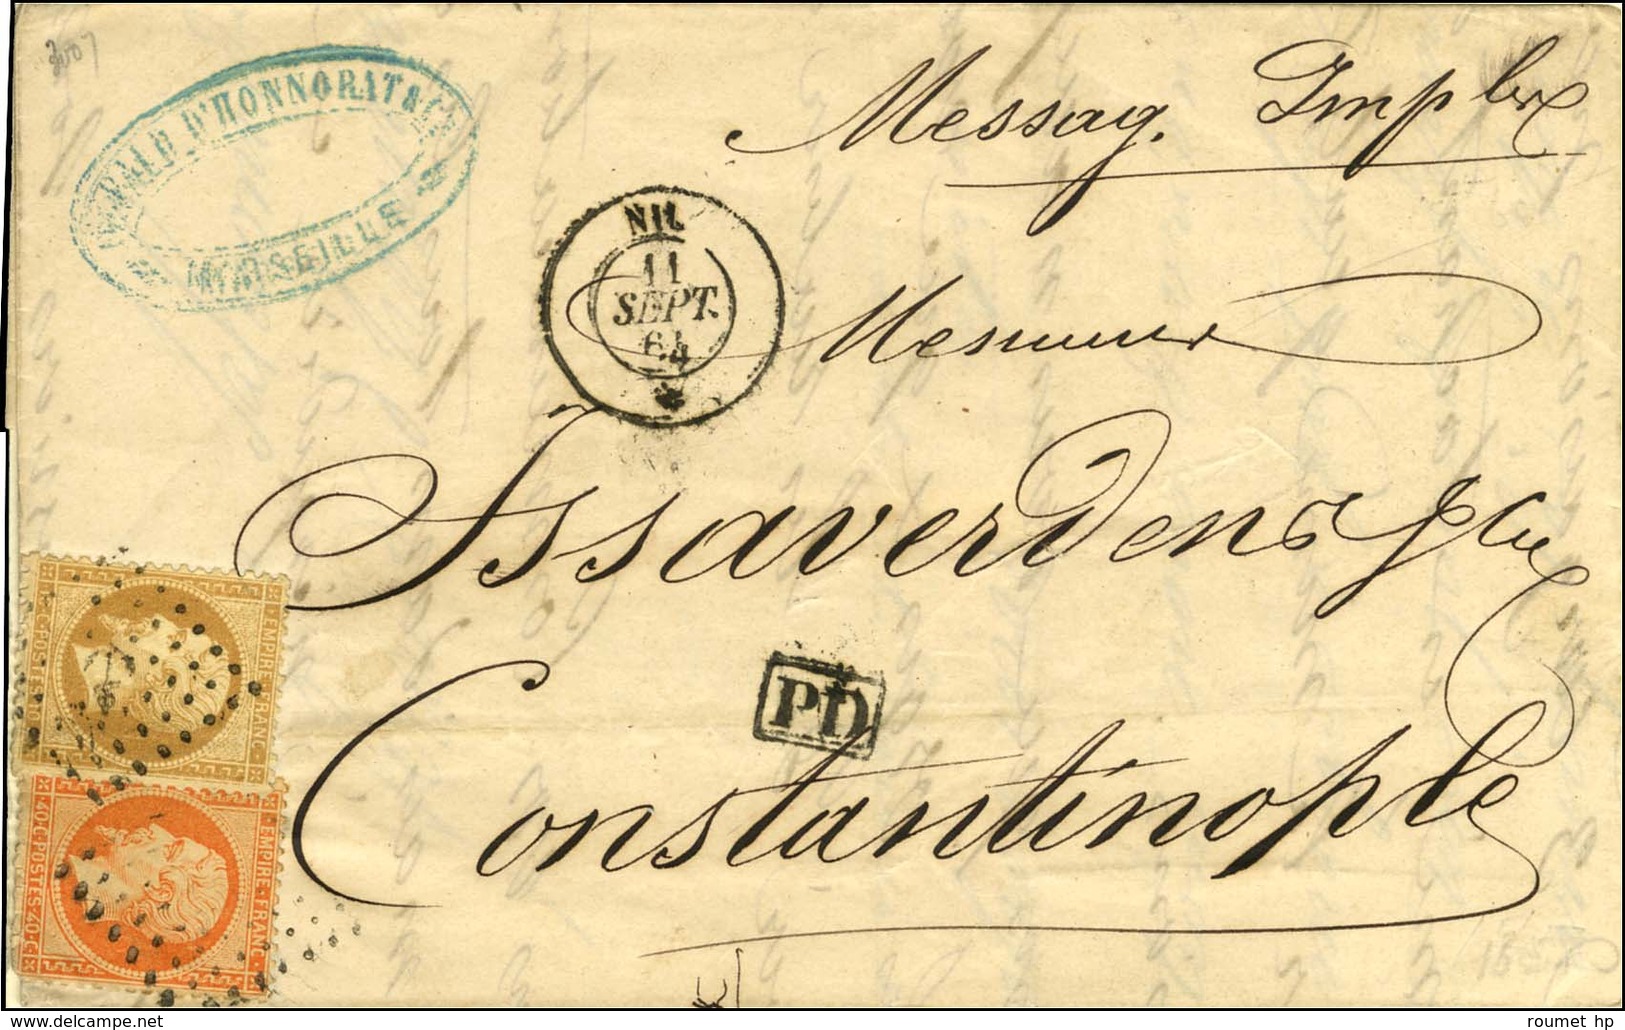 D'HONNORAT & Cie
MARSEILLE
Messag. Imples
NIL
11
SEPT.
64
Messieurs
Issaverdens & Cie
PD
Constantinople
EMPIRE FRANC
10 C POSTES 10 C
EMPIRE FRANC
40 C POSTES 40 C
www.delcampe.net
roumet hp